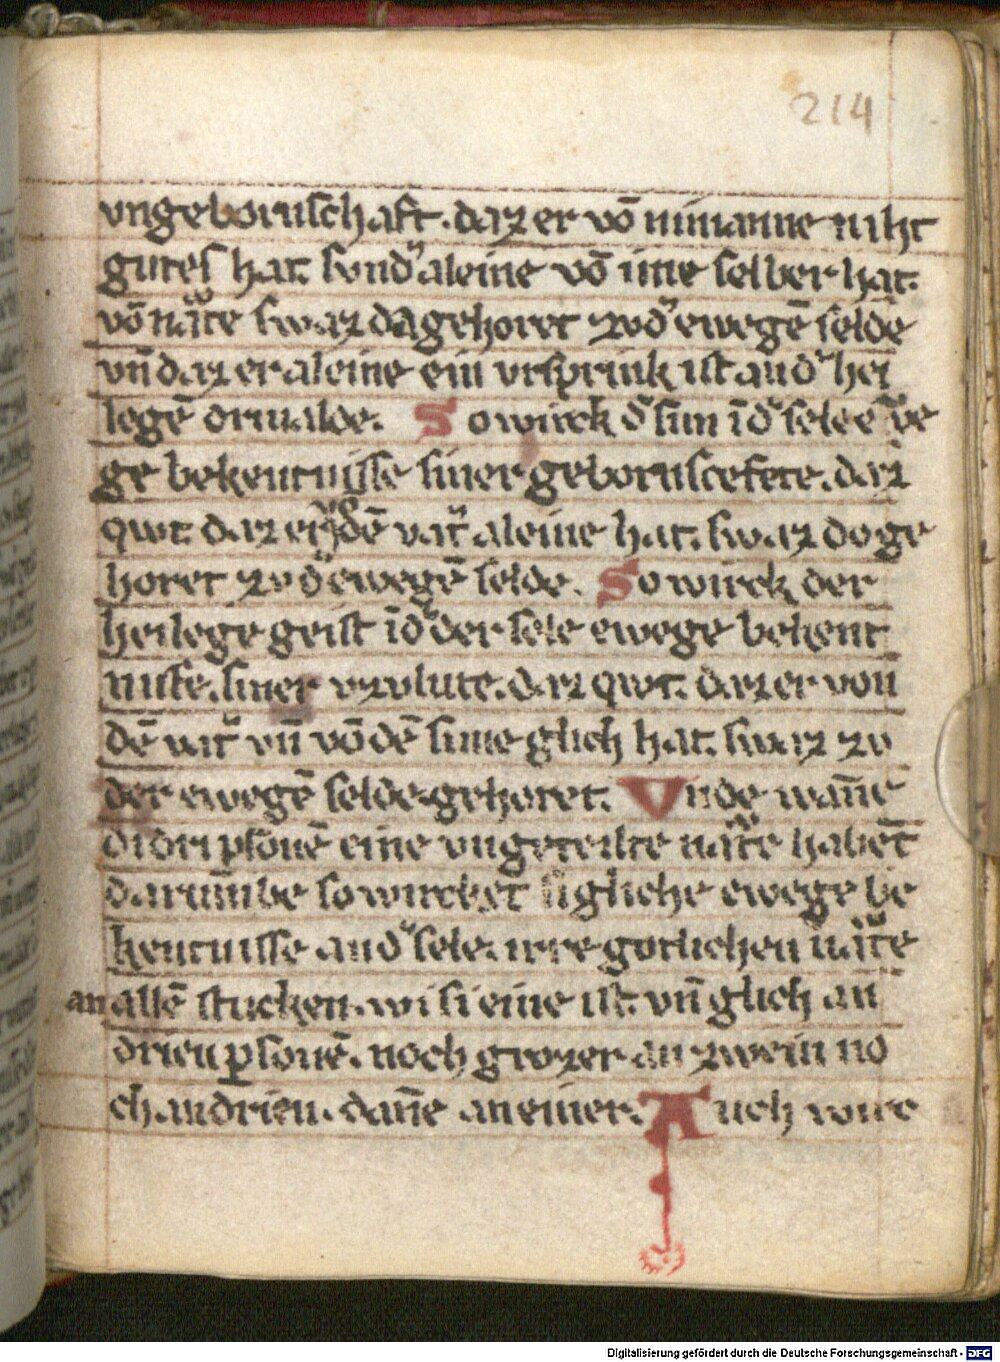 214
vngebornschaft. daz er vō nimanne niht
gutes hat. sundʼ aleine vō ime selber hat.
vō natᵉe swaz da gehoret zvdʼ ewegē selde
vn̄ daz er aleine ein vrsprink ist an dʼ hei
legē driualde. So wirck dʼ sun īdʼ sele ewe
ge bekentnisse siner gebornscefete. daz
qwt. daz er dē vatʼ aleine hat. swaz do ge
horet zv dʼ ewegē selde. So wirck der
heilege geist īdʼ der sele ewege bekent
nisse. siner vzvlute. daz qwt. daz er von
dē vatʼ vn̄ vō dē sune glich hat. swaz zv
der ewegē selde gehoret. Vnde wan̄e
di dri psonē eine vngeteilte natᵉe habēt
darūmbe so wircket igliche ewege be
kentnisse an dʼ sele. irre gotlichen natᵉe
an allē stucken. wi si eine ist. vn̄ glich an
drien psonē. noch grozer an zwein no
ch an drien. dan̄e an einer. Auch
Digitalisierung gefördert durch die Deutsche Forschungsgemeinschaft - DFG